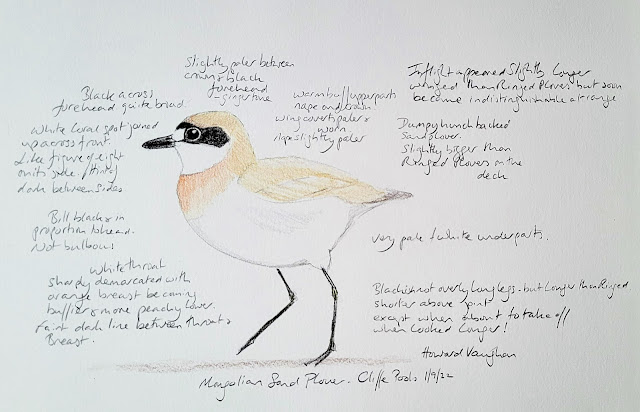 Slightly paler between
crown & black
forehead
- ginger tone
Black across
forehead quite broad.
White Loral spot joined
up across front.
Like figure of eight
on its side. Hint of
dark between sides
Bill black & in
proportion to head.
Not bulbous!
White throat
sharply demarcated with
orange breast becoming
buffier & more peachy lower.
Faint dark line between throat &
Breast.
Warm buff upperparts
nape and crown!
wing coverts paler &
worn
nape slightly paler
In flight appeared slightly longer
winged than Ringed Plover but soon
became indistinguishable at range
Dumpy hunch backed
Sandplover.
Slightly bigger than
Ringed Plovers on the
deck
Very pale / white underparts.
Blackish not overly long legs - but longer than Ringed
shorter above joint
except when about to take off
when looked longer!
Howard Vaughan
Mongolian Sand Plover. Cliffe Pools 1/9/22